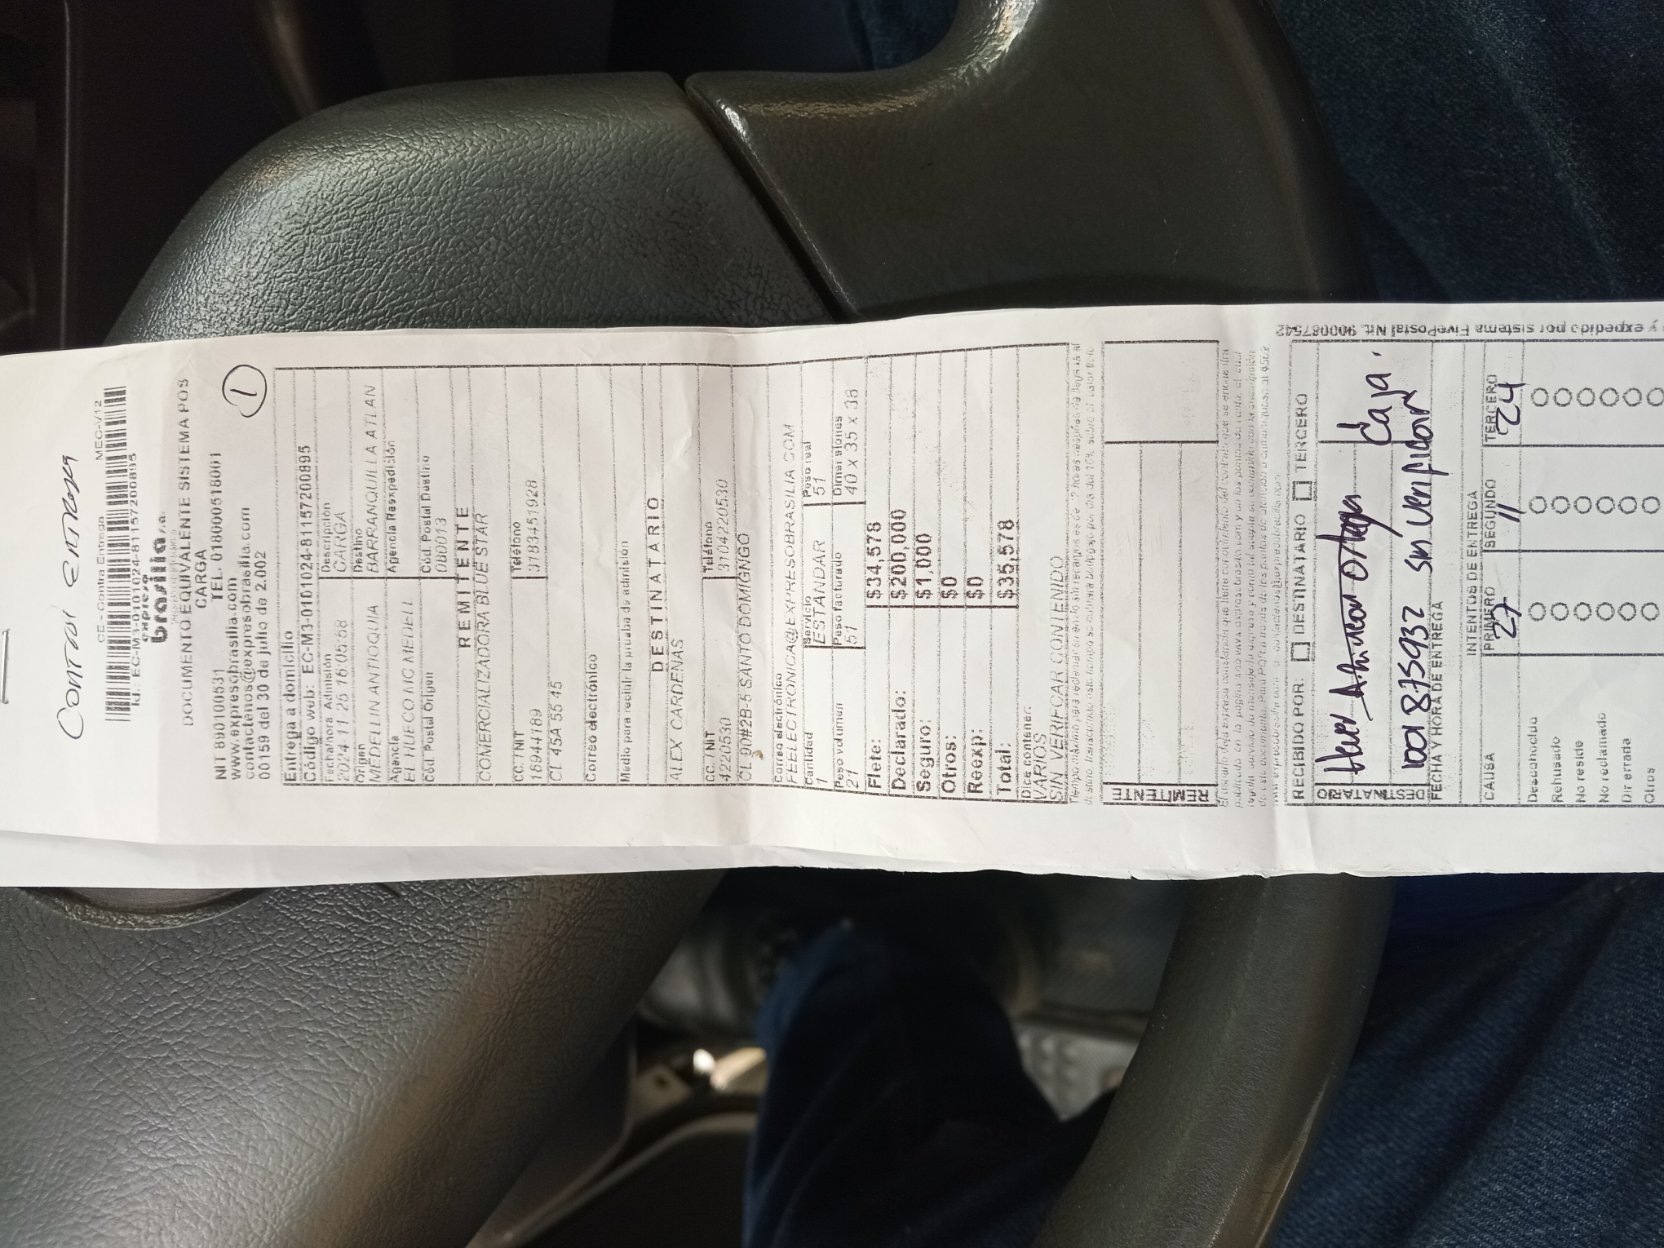 Control entrega
CE - Contra Entrega MEC-V12
Id. EC-M3-0101024-81157200895
expreso
brasilia s.a.
DOCUMENTO EQUIVALENTE SISTEMA POS
CARGA
NIT 890100531 TEL. 018000518001
www.expresobrasilia.com
contactenos@expresobrasilia.com
00159 del 30 de julio de 2.002
1
Entrega a domicilio
Código web: EC-M3-0101024-81157200895
Fecha/hora Admisión Descripción
2024 11 25 16:05:58 CARGA
Origen Destino
MEDELLIN ANTIOQUIA BARRANQUILLA ATLAN
Agencia Agencia Reexpedición
EL HUECO NC MEDELL
Cód. Postal Origen Cód. Postal Destino
080013
REMITENTE
COMERCIALIZADORA BLUE STAR
CC / NIT Teléfono
16944189 3183451928
CL 45A 55 45
Correo electrónico
Medio para recibir la prueba de admisión
DESTINATARIO
ALEX CARDENAS
CC / NIT Teléfono
4220530 3104220530
CL 90#2B-5 SANTO DOMIGNGO
Correo electrónico
FEELECTRONICA@EXPRESOBRASILIA.COM
Cantidad Servicio Peso real
1 ESTANDAR 51
Peso volumen Peso facturado Dimensiones
21 51 40 x 35 x 38
Flete: $34,578
Declarado: $200,000
Seguro: $1,000
Otros: $0
Reexp: $0
Total: $35,578
Dice contener:
VARIOS
SIN VERIFCAR CONTENIDO
REMITENTE
RECIBIDO POR: DESTINATARIO TERCERO
DESTINATARIO
Ortega Caja.
1001875932 sin verificar
FECHA Y HORA DE ENTREGA
INTENTOS DE ENTREGA
CAUSA PRIMERO SEGUNDO TERCERO
27 11 24
Desconocido
Rehusado
No reside
No reclamado
Dir errada
Otros
y expedido por sistema FivePostal Nit. 900087542